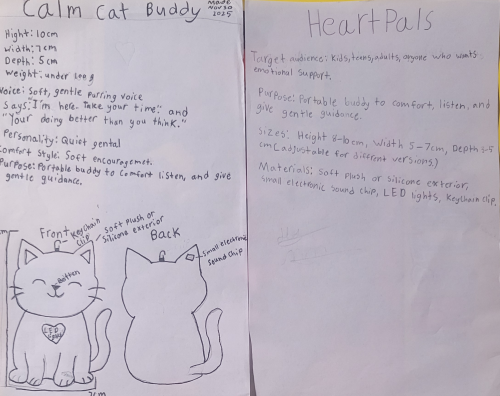 Calm Cat Buddy
Made
2025
Hight: 10cm
Width: 7cm
Depth: 5cm
Weight: under 100g
Voice: Soft, gentle purring voice
Says: "I'm here. Take your time." and
"Your doing better than you think."
Personality: Quiet gental
Comfort Style: Soft encouragemet.
Purpose: Portable buddy to comfort listen, and give
gentle guidance.
Front
Keychain
Clip
Soft plush or
silicone exterior
Back
Small electronic
Sound chip
Button
LED
7cm
HeartPals
Target audience: Kids, teens, adults, anyone who wants
emotional support.
Purpose: Portable buddy to comfort, listen, and
give gentle guidance.
Sizes: Height 8-10cm, Width 5-7cm, Depth 3-5
cm (adjustable for different versions)
Materials: Soft plush or silicone exterior,
small electronic sound chip, LED lights, Keychain clip.